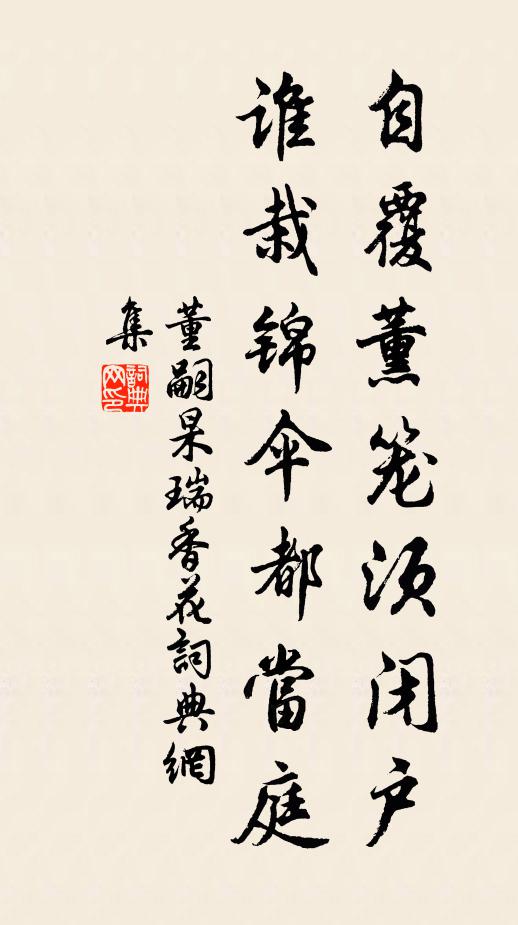 自覆薰笼须闭户
谁栽锦伞都當庭
董嗣杲瑞香花詞典網
集
詞典
网印